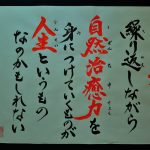 繰り返しながら
自然治癒力を
身につけていくものが
人生というもの
なのかもしれない